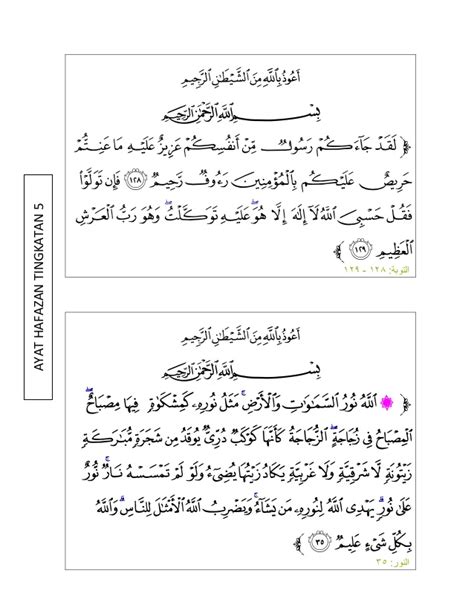 AYAT HAFAZAN TINGKATAN 5
أَعُوذُ بِاللَّهِ مِنَ الشَّيْطَانِ الرَّجِيمِ
بِسْمِ اللَّهِ الرَّحْمَٰنِ الرَّحِيمِ
﴿ لَقَدْ جَاءَكُمْ رَسُولٌ مِّنْ أَنفُسِكُمْ عَزِيزٌ عَلَيْهِ مَا عَنِتُّمْ
حَرِيصٌ عَلَيْكُم بِالْمُؤْمِنِينَ رَءُوفٌ رَّحِيمٌ ١٢٨ فَإِن تَوَلَّوْا
فَقُلْ حَسْبِيَ اللَّهُ لَا إِلَٰهَ إِلَّا هُوَ ۖ عَلَيْهِ تَوَكَّلْتُ ۖ وَهُوَ رَبُّ الْعَرْشِ
الْعَظِيمِ ١٢٩ ﴾
التوبة: ١٢٨ - ١٢٩
أَعُوذُ بِاللَّهِ مِنَ الشَّيْطَانِ الرَّجِيمِ
بِسْمِ اللَّهِ الرَّحْمَٰنِ الرَّحِيمِ
﴿ ۞ اللَّهُ نُورُ السَّمَاوَاتِ وَالْأَرْضِ ۚ مَثَلُ نُورِهِ كَمِشْكَاةٍ فِيهَا مِصْبَاحٌ ۖ
الْمِصْبَاحُ فِي زُجَاجَةٍ ۖ الزُّجَاجَةُ كَأَنَّهَا كَوْكَبٌ دُرِّيٌّ يُوقَدُ مِن شَجَرَةٍ مُّبَارَكَةٍ
زَيْتُونَةٍ لَّا شَرْقِيَّةٍ وَلَا غَرْبِيَّةٍ يَكَادُ زَيْتُهَا يُضِيءُ وَلَوْ لَمْ تَمْسَسْهُ نَارٌ ۚ نُّورٌ
عَلَىٰ نُورٍ ۗ يَهْدِي اللَّهُ لِنُورِهِ مَن يَشَاءُ ۚ وَيَضْرِبُ اللَّهُ الْأَمْثَالَ لِلنَّاسِ ۗ وَاللَّهُ
بِكُلِّ شَيْءٍ عَلِيمٌ ٣٥ ﴾
النور: ٣٥